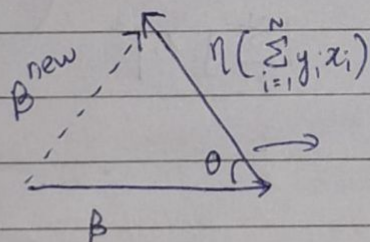 β^new
η(∑_{i=1}^{N} y_i x_i)
θ
β